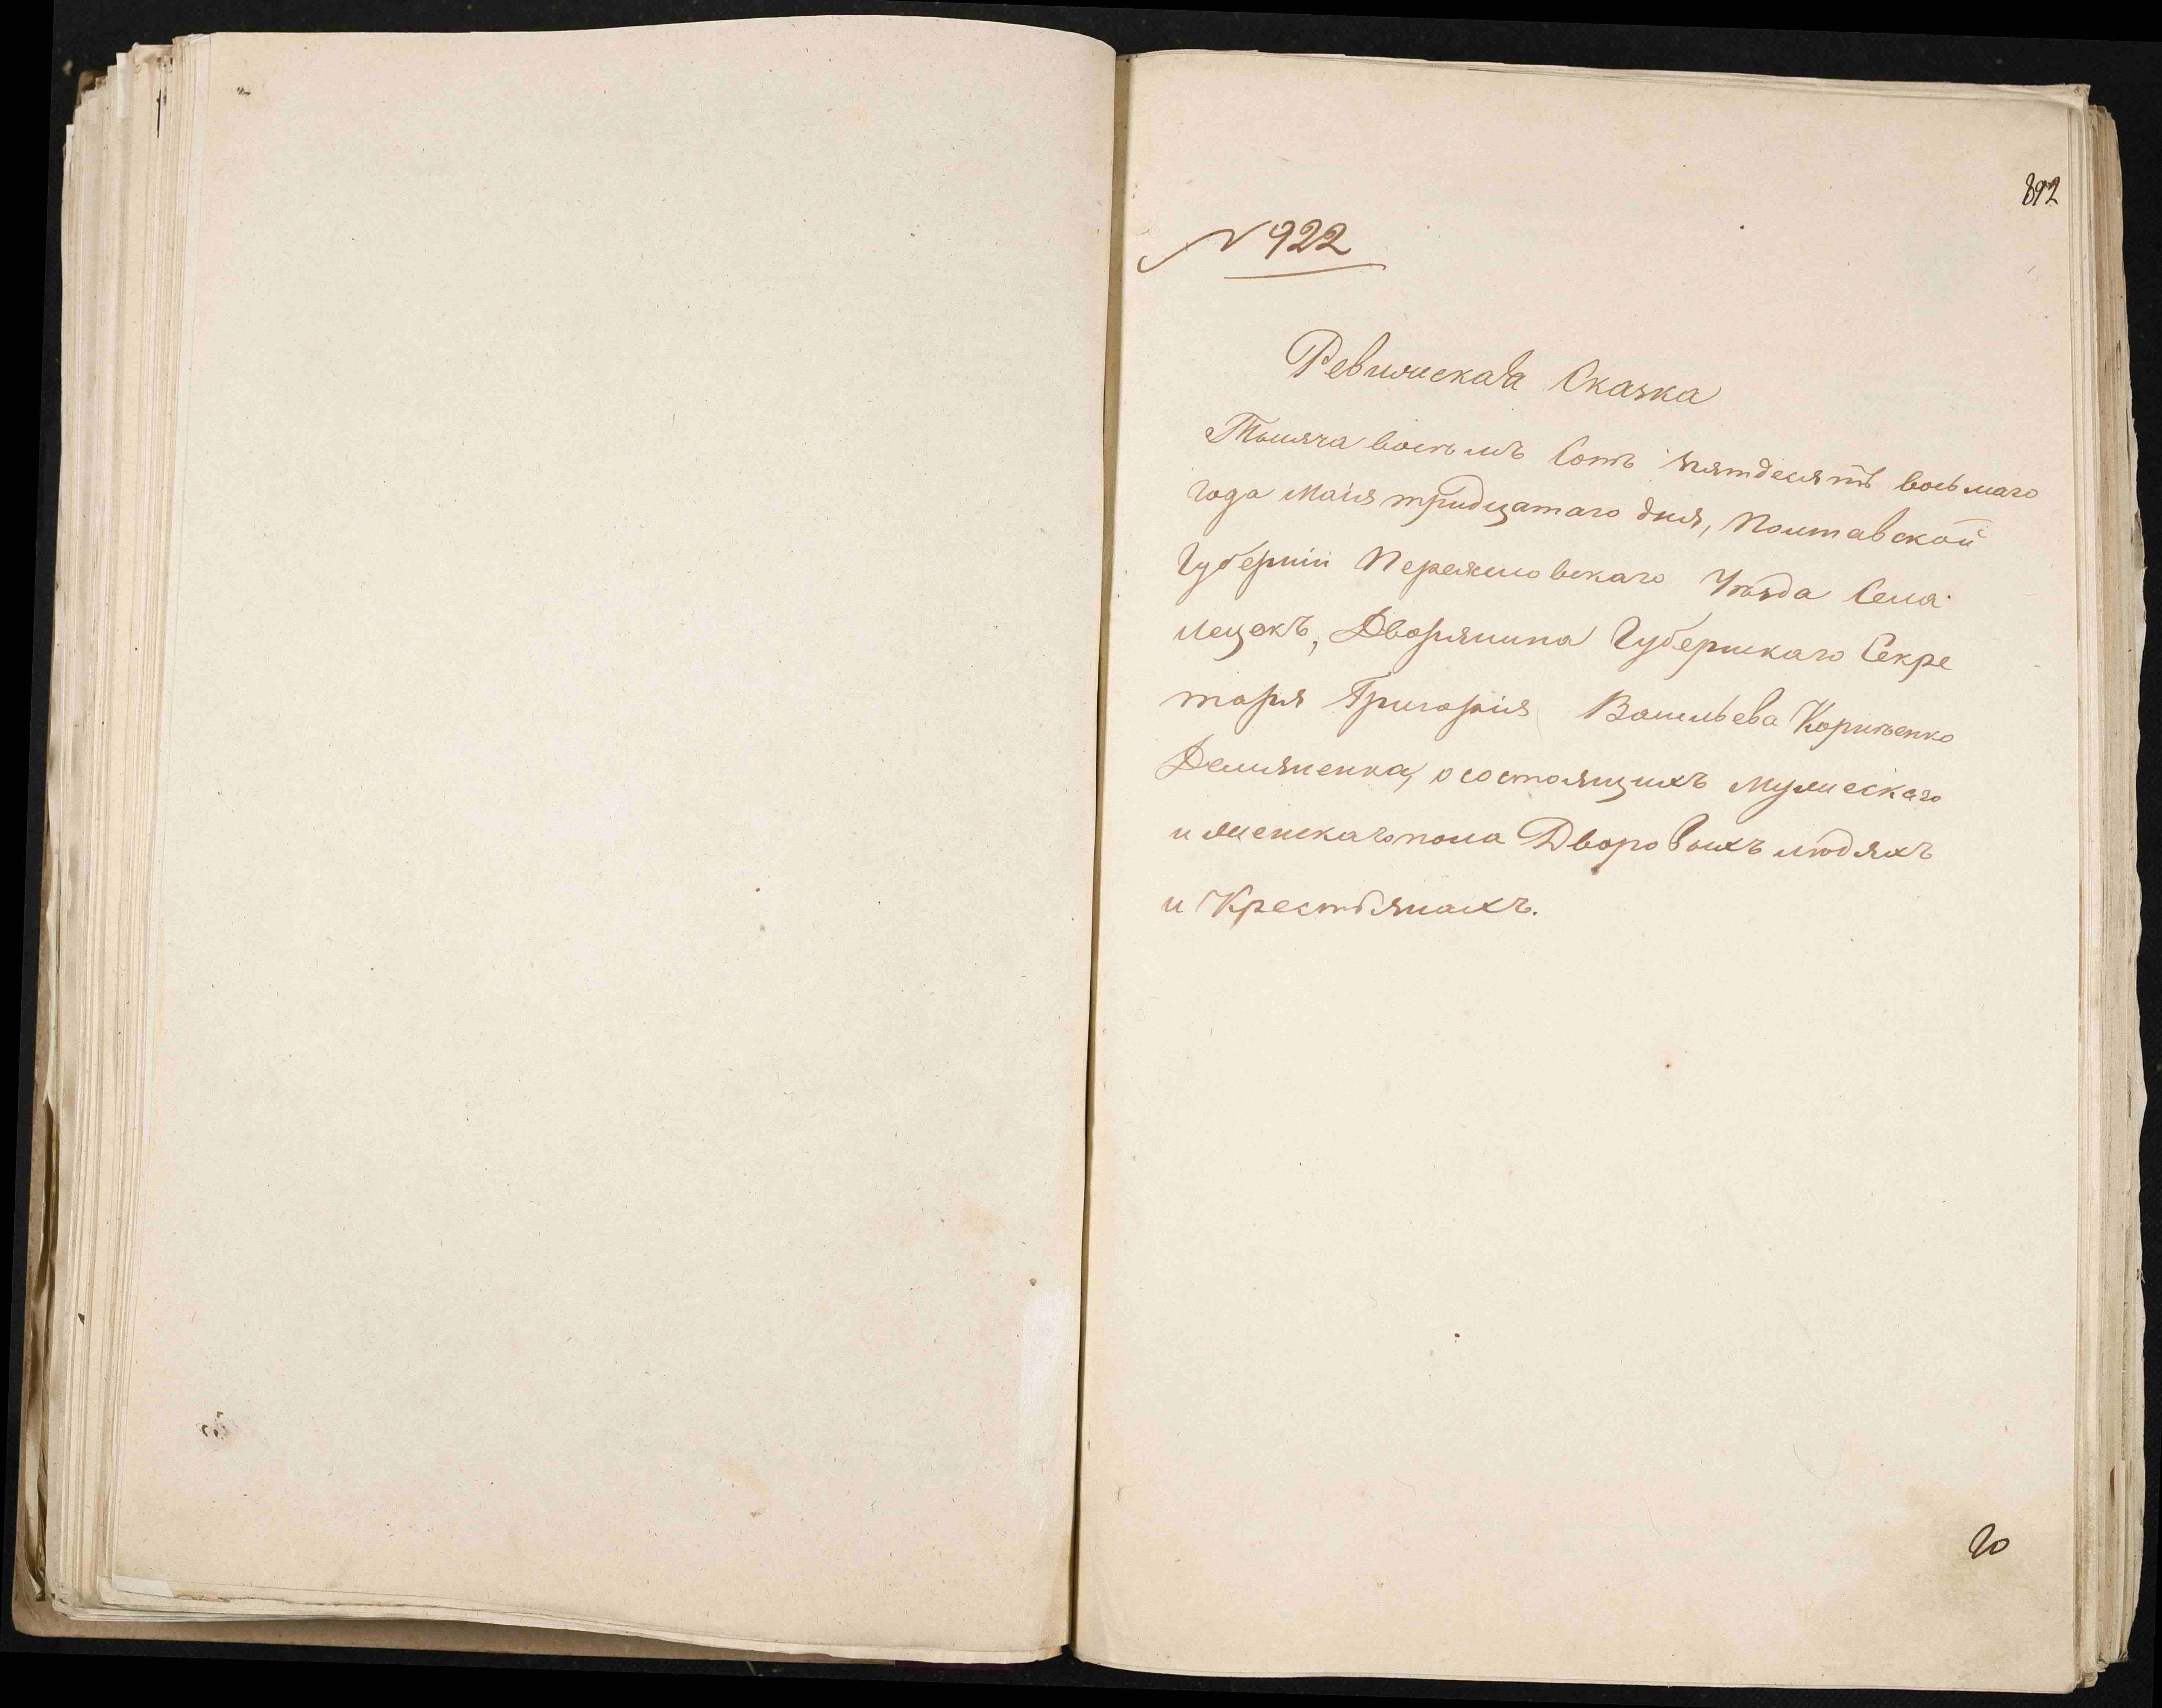 892
№ 922
Ревижская Сказка
Тысяча восемь Сотъ пятдесятъ восьмаго
года Маія тридцатаго дня, Полтавской
Губерніи Переяславскаго Уѣзда Села
Лецокъ, Дворянина Губернскаго Секре
таря Григорія Васильева Корнѣенко
Демяненка, о состоящихъ Мужескаго
и женскаго пола Дворовыхъ людяхъ
и Крестьянахъ.
20